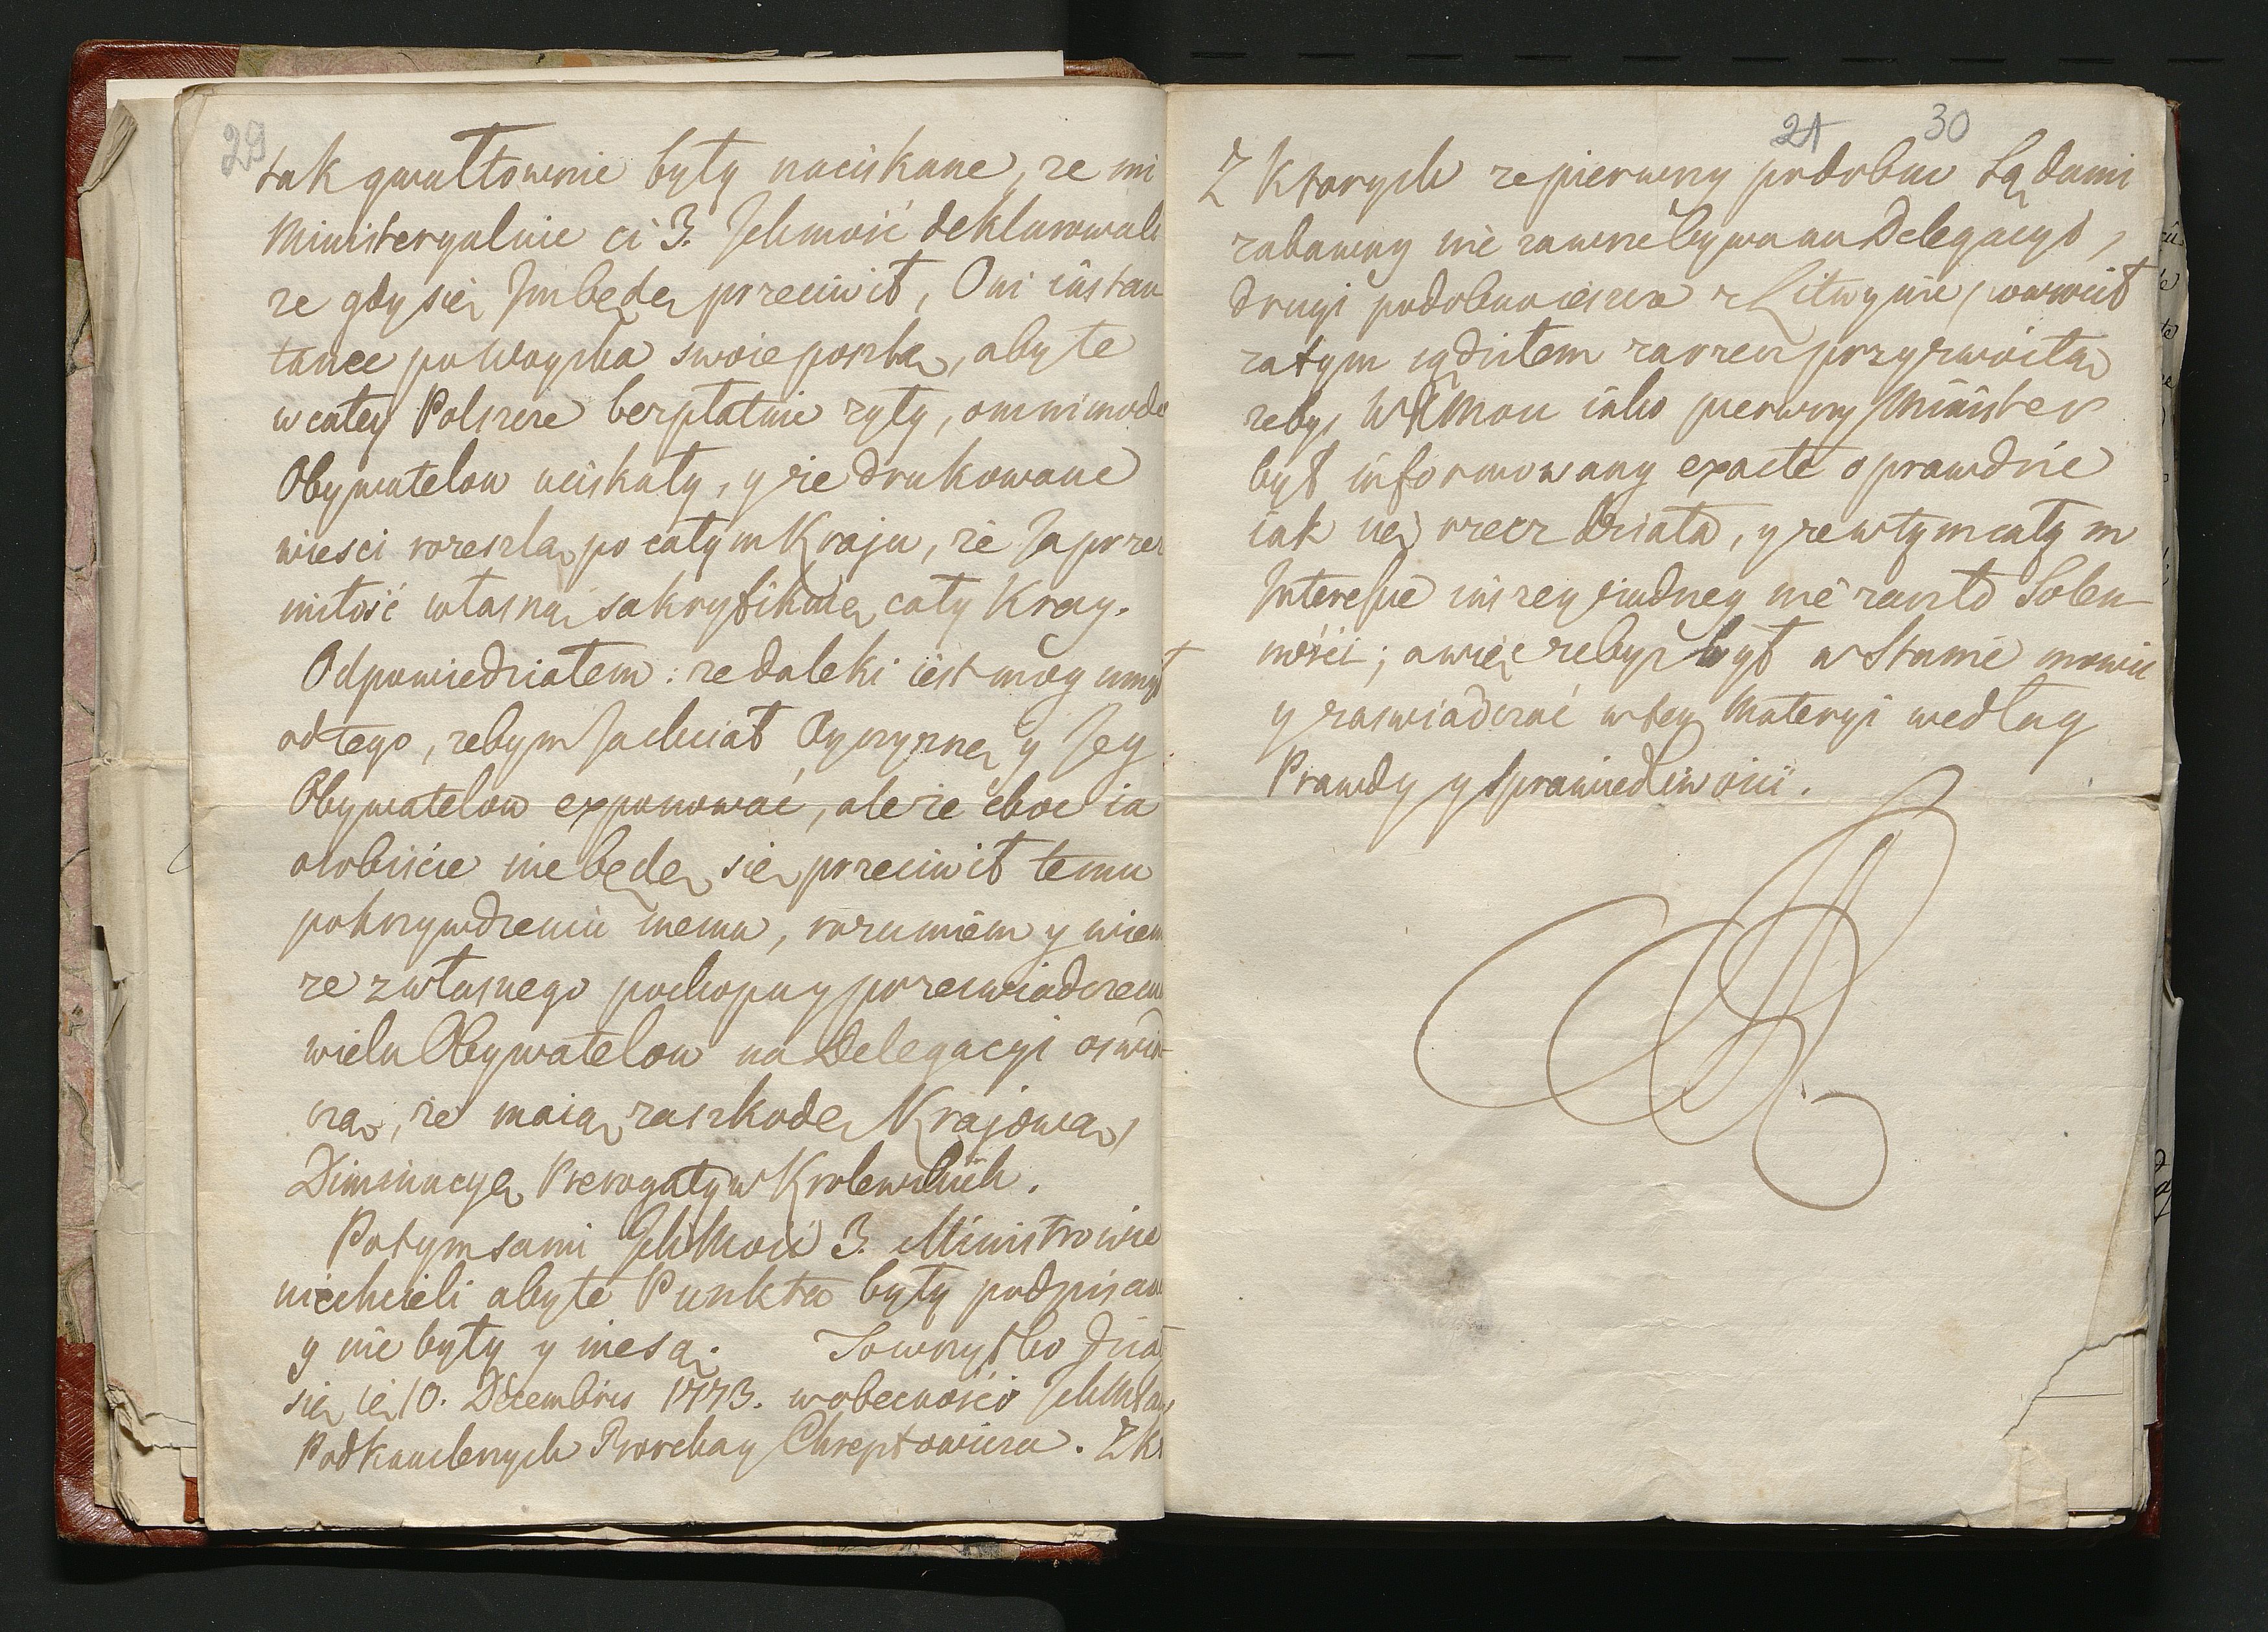 29
tak gwałtownie były naciskane, ze mi
Ministeryalnie ci 3. Jchmość deklarowali
ze gdy się Jm będę przeciwił, Oni instan
tanee po Woyska swoie poszlą, aby te
w całey Polszcze bezpłatnie zyły, omnimode
Obywatelow uciskały, y że drukowane
wiesci rozeszlą po całym Kraju, że Ja przez
miłość własną sakryfikuię cały Kray.
Odpowiedziałem: ze daleki iest moy umysł
od tego, zebym Ja chciał Oyczyznę y Jey
Obywatelow exponować, ale że choc ia
osobiście nie będę się przeciwił temu
pokrzywdzeniu memu, rozumiem y wiem
ze z własnego pochopu y przeswiadczenia
wielu Obywatelow na Delegacyi oswiad-
czą, że maią za szkodę Krajową,
Diminucyą Prerogatyw Krolewskich.
Potym sami JchMość 3. Ministrowie
niechcieli aby te Punkta były podpisane
y nie były y nie są. To wszystko dzia
się ię 10. Decembris 1773. w obecności
Podkanclerzych Borcha y Chreptowicza. Z kt
21 30
Z Ktorych ze pierwszy podobno Sądami
zabawny nie zawsze bywa na Delegacyi,
drugi podobno ieszcze z Litwy nie powrocił
zatym sądziłem za rzecz przyzwoitą
zebyś WMPan iako pierwszy Minister
był informowany exacte o prawdzie
iak się rzecz działa, y ze w tym całym
Interesie inszey żadney nie zaszło Solen-
ności; a więc zebyś był w Stanie mowic
y zaswiadczać w tey Materyi według
Prawdy y Sprawiedliwości.